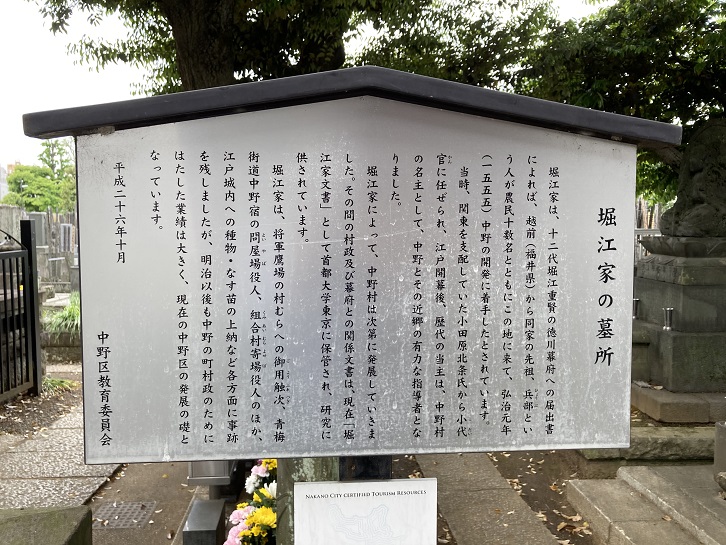 堀江家の墓所
堀江家は、十二代堀江重賢の徳川幕府への届出書
によれば、越前（福井県）から同家の先祖、兵部とい
う人が農民十数名とともにこの地に来て、弘治元年
（一五五五）中野の開発に着手したとされています。
当時、関東を支配していた小田原北条氏から小代
官に任ぜられ、江戸開幕後、歴代の当主は、中野村
の名主として、中野とその近郷の有力な指導者とな
りました。
堀江家によって、中野村は次第に発展していきま
した。その間の村政及び幕府との関係文書は、現在「堀
江家文書」として首都大学東京に保管され、研究に
供されています。
堀江家は、将軍鷹場の村むらへの御用触次、青梅
街道中野宿の問屋場役人、組合村寄場役人のほか、
江戸城内への種物・なす苗の上納など各方面に事跡
を残しましたが、明治以後も中野の町村政のために
はたした業績は大きく、現在の中野区の発展の礎と
なっています。
平成二十六年十月
中野区教育委員会
NAKANO CITY CERTIFIED TOURISM RESOURCES